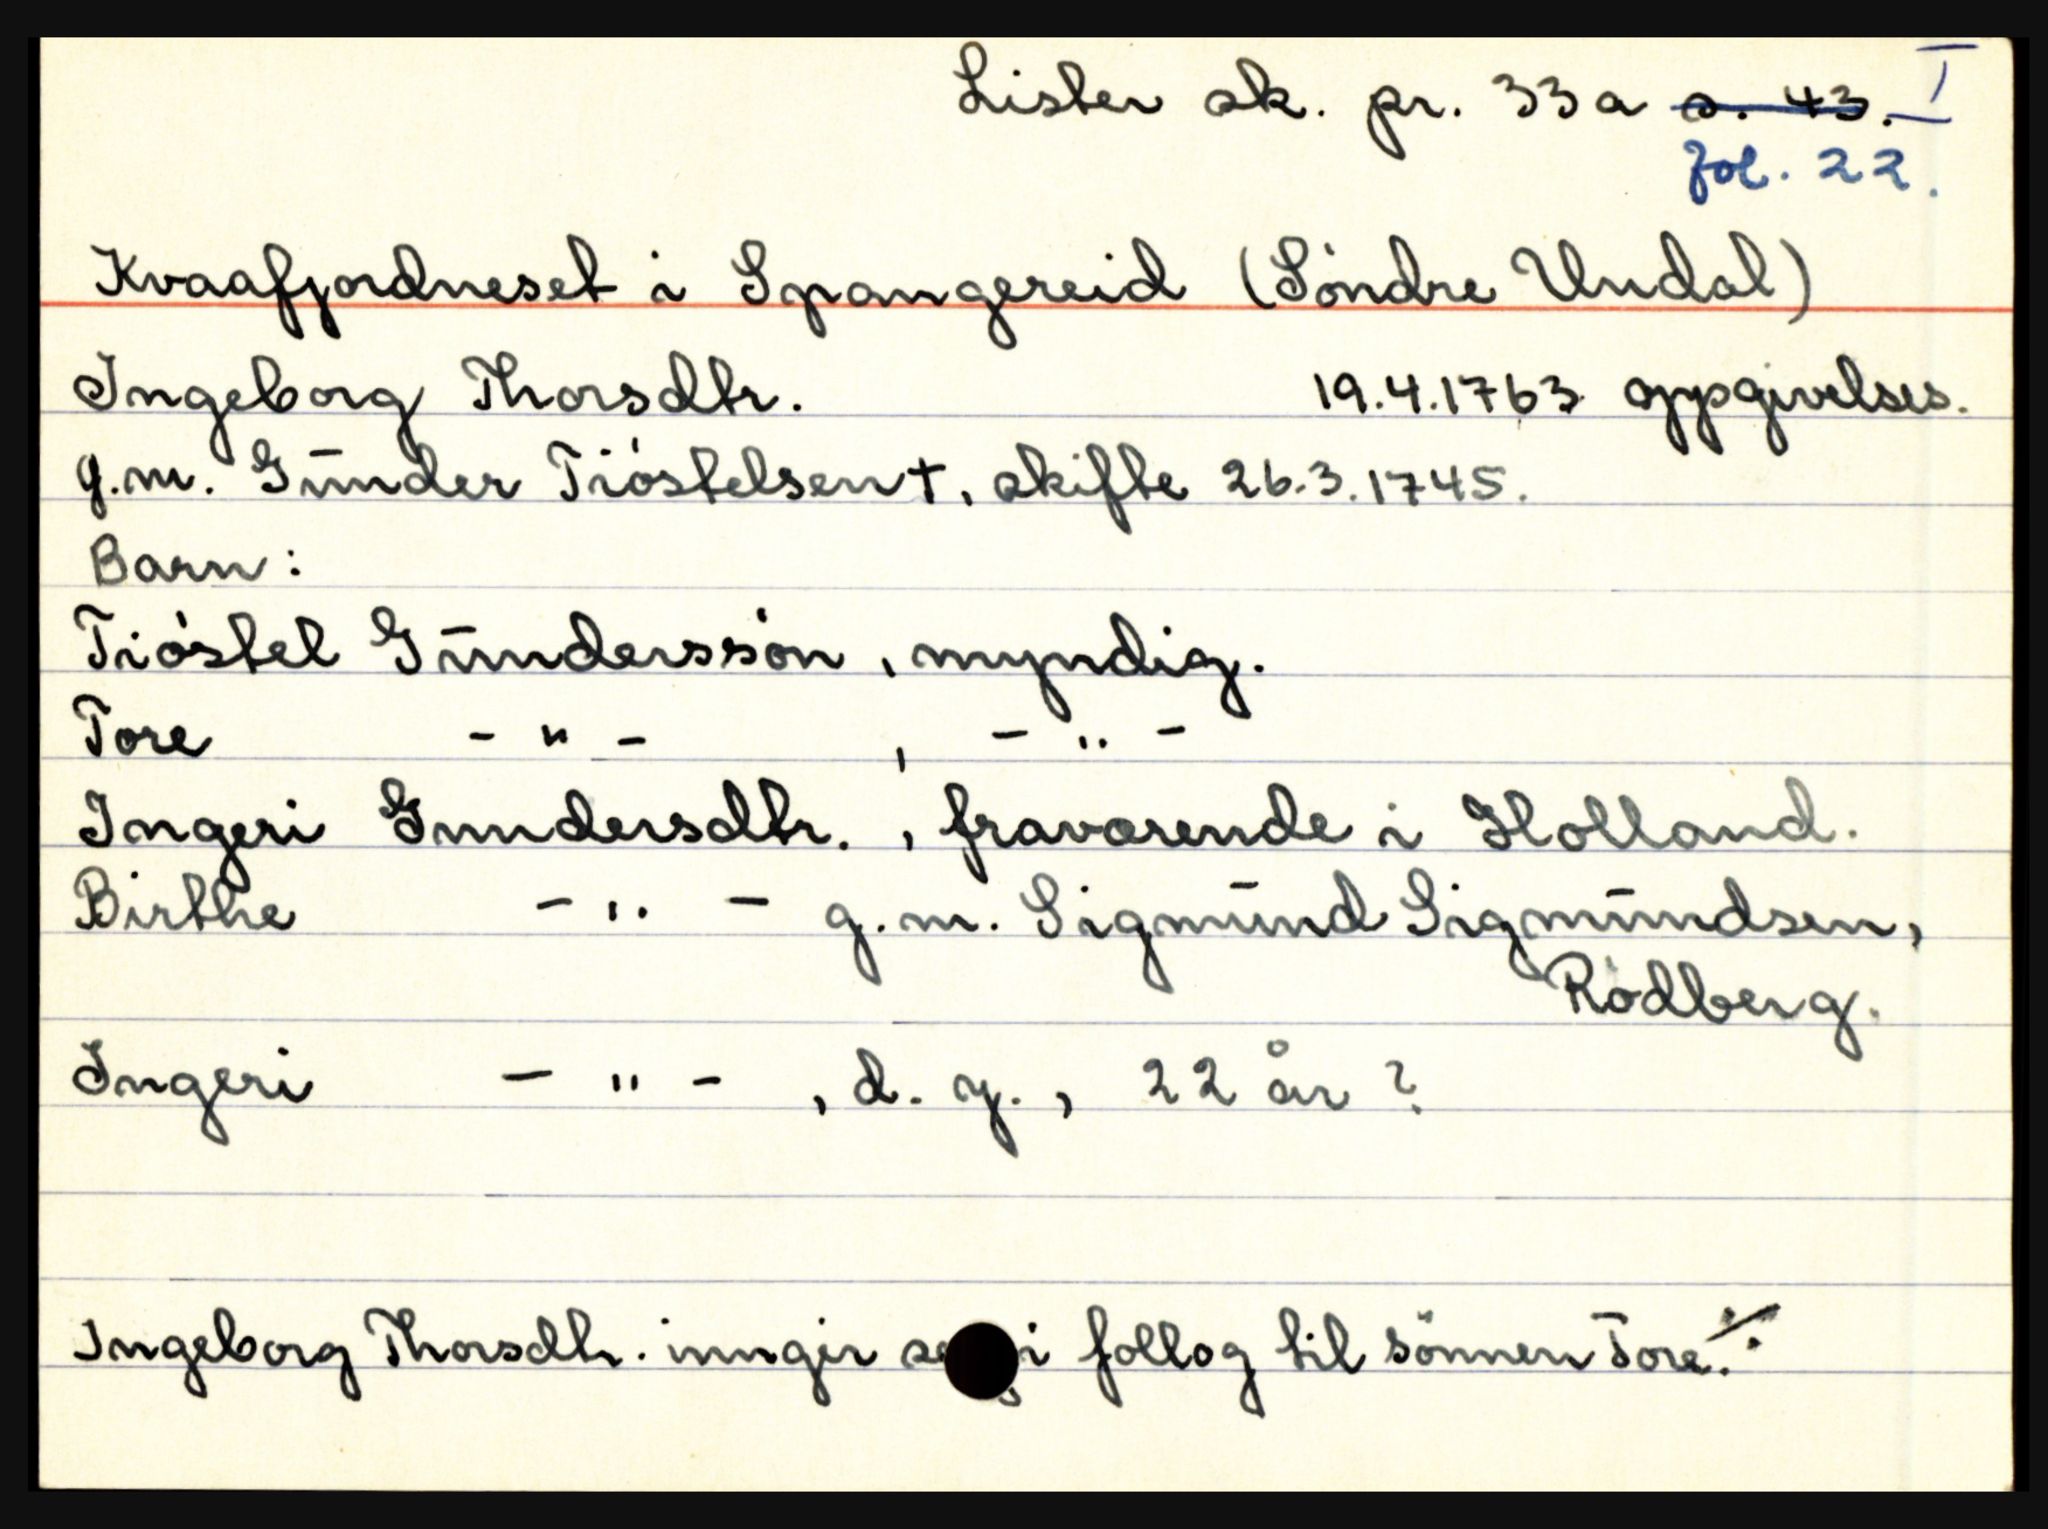 Lister sk. pr. 33a s. 43. I
fol. 22.
Kvaafjordneset i Spangereid (Söndre Undal)
Ingeborg Thorsdtr. 19.4.1763 oppgivelses.
g.m. Gūnder Tióstelsen †, skifte 26.3.1745.
Barn:
Tióstel Gūnderssón, myndig.
Tore - " - , - " -
Ingeri Gundersdtr., fraværende i Holland.
Birthe - " - g.m. Sigmūnd Sigmūndsen,
Rödberg.
Ingeri - " - , d. y., 22 år?
Ingeborg Thorsdtr. inngir i follog til sönnen Tore.